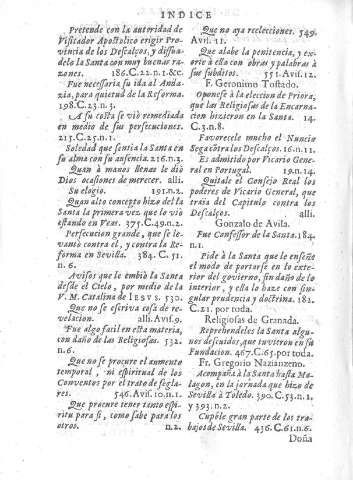 INDICE
Pretende con la autoridad de
Visitador Apostolico erigir Pro-
vincia de los Descalços, y dissua-
delo la Santa con muy buenas ra-
zones. 186.C.22.n.1.&c.
Fue necessaria su ida al Anda-
zia, para quietud de la Reforma.
198.C.23.n.3.
A su costa se viò remediada
en medio de sus persecuciones.
213.C.25.n.1.
Soledad que sentia la Santa en
su alma con su ausencia. 216.n.3.
Quan à manos llenas le diò
Dios ocasiones de merecer. alli.
Su elogio. 191.n.2.
Quan alto concepto hizo del la
Santa la primera vez que lo viò
estando en Veas. 371.C.49.n.2.
Persecucion grande, que se le-
vantò contra el, y contra la Re-
forma en Sevilla. 384. C. 51.
n.6.
Avisos que le embiò la Santa
desde el Cielo, por medio de la
V.M. Catalina de IESVS. 530.
Que no se escriva cosa de re-
velacion. alli. Avis.9.
Fue algo facil en esta materia,
con daño de las Religiosas. 532.
n.6.
Que no se procure el aumento
temporal, ni espiritual de los
Conventos por el trato de segla-
res. 546.Avis.10.n.1.
Que procure tener tanto espi-
ritu para si, como sabe para los
otros. n.2.
Que no aya reelecciones. 549.
Avis.11.
Que alabe la penitencia, y ex-
orte à ello con obras y palabras à
sus subditos. 551.Avis.12.
F. Geronimo Tostado.
Oponese à la eleccion de Priora,
que las Religiosas de la Encarna-
cion hizieron en la Santa. 14.
C.3.n.8.
Favorecele mucho el Nuncio
Sega contra los Descalços. 16.n.11.
Es admitido por Vicario Gene-
ral en Portugal. 19.n.14.
Quitale el Consejo Real los
poderes de Vicario General, que
traìa del Capitulo contra los
Descalços. alli.
Gonzalo de Avila.
Fue Confessor de la Santa. 184.
n.1.
Pide à la Santa que le enseñe
el modo de portarse en lo exte-
rior del govierno, sin daño de lo
interior, y ella lo haze con sin-
gular prudencia y doctrina. 182.
C.21. por toda.
Religiosas de Granada.
Reprehendeles la Santa algu-
nos descuidos, que tuvieron en su
Fundacion. 467.C.65.por toda.
Fr. Gregorio Nazianzeno.
Acompaña à la Santa hasta Ma-
lagon, en la jornada que hizo de
Sevilla à Toledo. 390.C.53.n.1.
y 393.n.2.
Cupole gran parte de los tra-
bajos de Sevilla. 436.C.61.n.6.
Doña